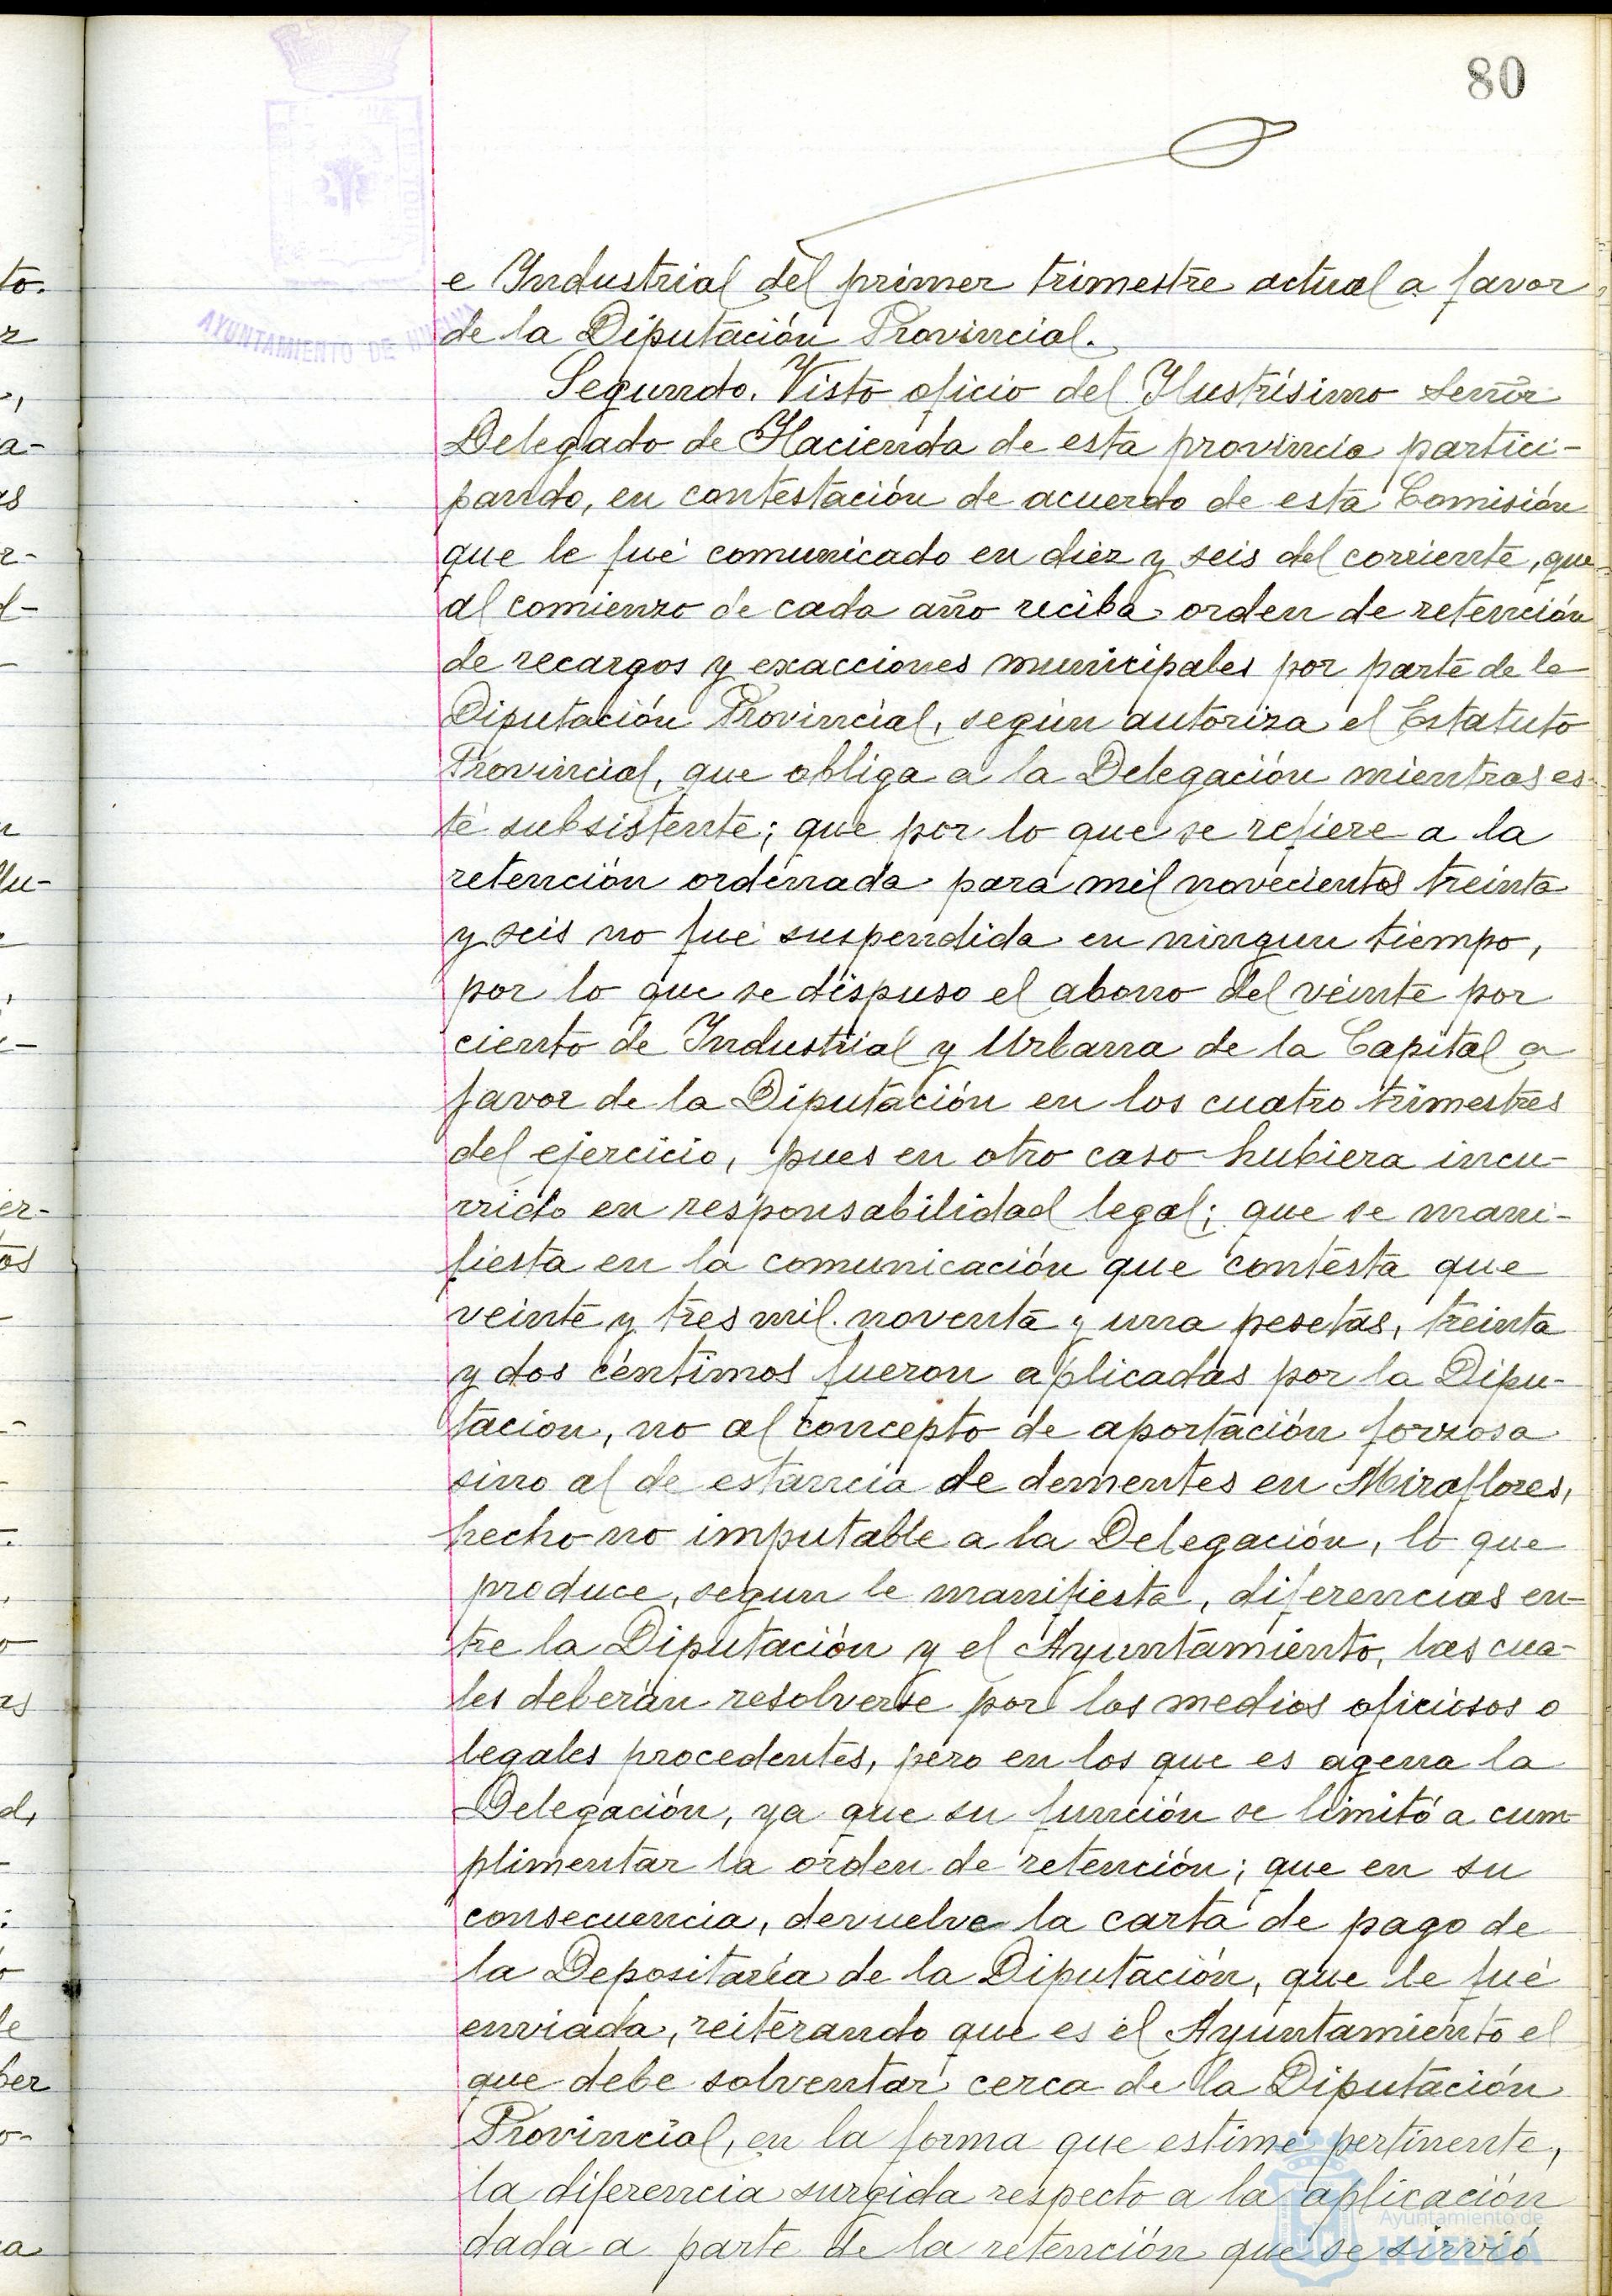 80
AYUNTAMIENTO DE HUELVA
e Industrial del primer trimestre actual a favor
de la Diputación Provincial.
Segundo. Visto oficio del Ilustrísimo Señor
Delegado de Hacienda de esta provincia partici-
pando, en contestación de acuerdo de esta Comisión
que le fué comunicado en diez y seis del corriente, que
al comienzo de cada año reciba orden de retención
de recargos y exacciones municipales por parte de la
Diputación Provincial, según autoriza el Estatuto
Provincial, que obliga a la Delegación mientras es-
té subsistente; que por lo que se refiere a la
retención ordenada para mil novecientos treinta
y seis no fué suspendida en ningun tiempo,
por lo que se dispuso el abono del veinte por
ciento de Industrial y Urbana de la Capital a
favor de la Diputación en los cuatro trimestres
del ejercicio, pues en otro caso hubiera incu-
rrido en responsabilidad legal; que se mani-
fiesta en la comunicación que contesta que
veinte y tres mil noventa y una pesetas, treinta
y dos céntimos fueron aplicadas por la Dipu-
tacion, no al concepto de aportación forzosa
sino al de estancia de dementes en Miraflores,
hecho no imputable a la Delegación, lo que
produce, segun le manifiesta, diferencias en-
tre la Diputación y el Ayuntamiento, las cua-
les deberán resolverse por los medios oficiosos o
legales procedentes, pero en los que es agena la
Delegación, ya que su función se limitó a cum-
plimentar la orden de retención; que en su
consecuencia, devuelve la carta de pago de
la Depositaría de la Diputación, que le fué
enviada, reiterando que es el Ayuntamiento el
que debe solventar cerca de la Diputación
Provincial, en la forma que estime pertinente,
la diferencia surgida respecto a la aplicación
dada a parte de la retención que se sirvió
Ayuntamiento de
HUELVA